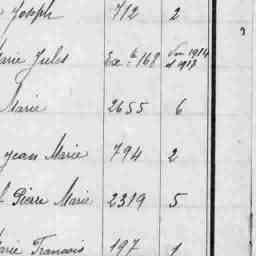 Joseph 712 2
Marie Jules 168 1914
Marie 2655 6
Jean Marie 794 2
Pierre Marie 2319 5
Marie François 197 1